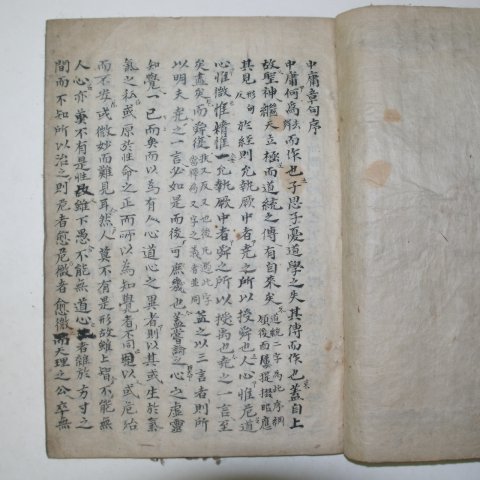 中庸章句序
中庸何爲而作也子思子憂道學之失其傳而作也蓋自上
古聖神繼天立極而道統之傳有自來矣道統二字爲此序綱領後面屢提掇照應
其見於經則允執厥中者堯之所以授舜也人心惟危道
心惟微惟精惟一允執厥中者舜之所以授禹也堯之一言至
矣盡矣而舜復益之以三言者則所
以明夫堯之一言必如是而後可庶幾也蓋嘗論之心之虛靈
知覺一已而矣而以爲有人心道心之異者則以其或生於形
氣之私或原於性命之正而所以爲知覺者不同是以或危殆
而不安或微妙而難見耳然人莫不有是形故雖上智不能無
人心亦莫不有是性故雖下愚不能無道心二者雜於方寸之
間而不知所以治之則危者愈危微者愈微而天理之公卒無